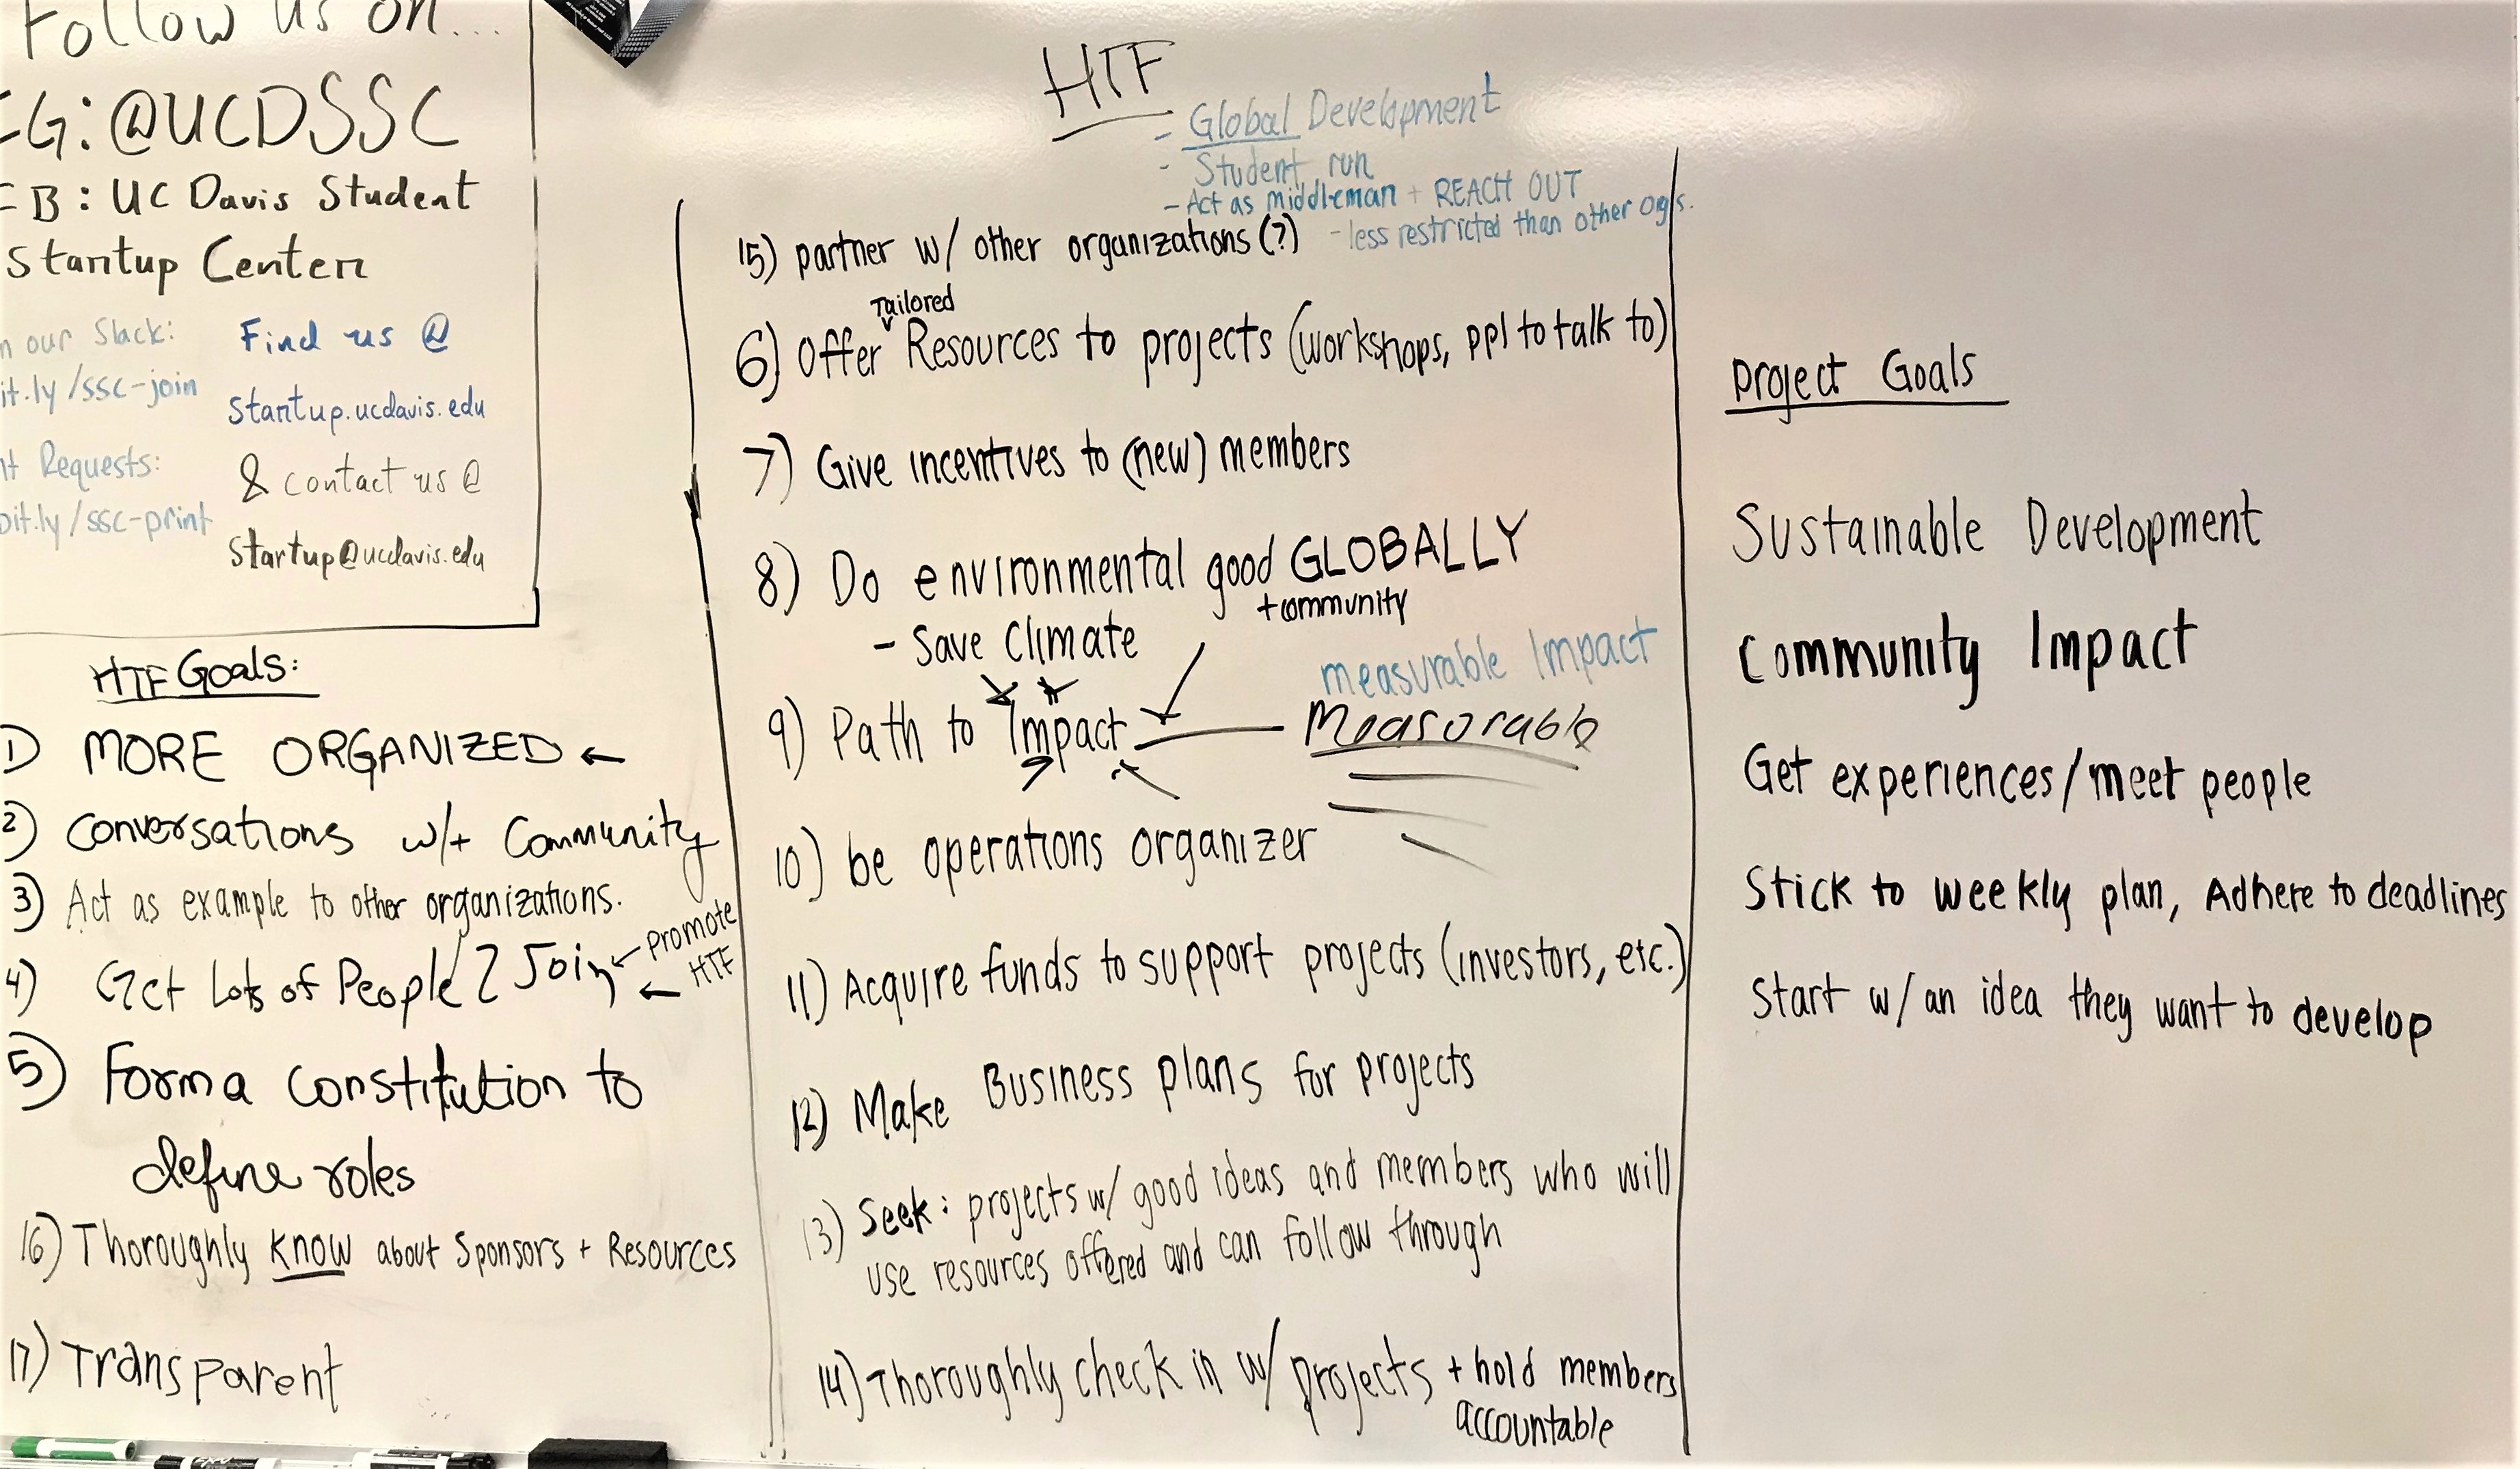 Follow us on...
G: @UCDSSC
B: UC Davis Student
Startup Center
our Slack:
it.ly/ssc-join
Requests:
bit.ly/ssc-print
Find us @
startup.ucdavis.edu
& contact us @
startup@ucdavis.edu
HTF Goals:
1) MORE ORGANIZED ←
2) Conversations w/+ Community
3) Act as example to other organizations.
4) Get Lots of People 2 Join ← promote
← HTF
5) Form a constitution to
define roles
16) Thoroughly know about Sponsors + Resources
17) Transparent
HTF
- Global Development
- Student run
- Act as middleman + REACH OUT
- less restricted than other ogs.
15) partner w/ other organizations (?)
Tailored
6) Offer Resources to projects (workshops, ppl to talk to)
7) Give incentives to (new) members
8) Do environmental good GLOBALLY
+community
- Save Climate
measurable Impact
9) Path to Impact Measorable
10) be operations organizer
11) Acquire funds to support projects (investors, etc.)
12) Make Business plans for projects
13) Seek: projects w/ good ideas and members who will
use resources offered and can follow through
14) Thoroughly check in w/ projects + hold members
accountable
Project Goals
Sustainable Development
Community Impact
Get experiences/meet people
Stick to weekly plan, Adhere to deadlines
Start w/ an idea they want to develop